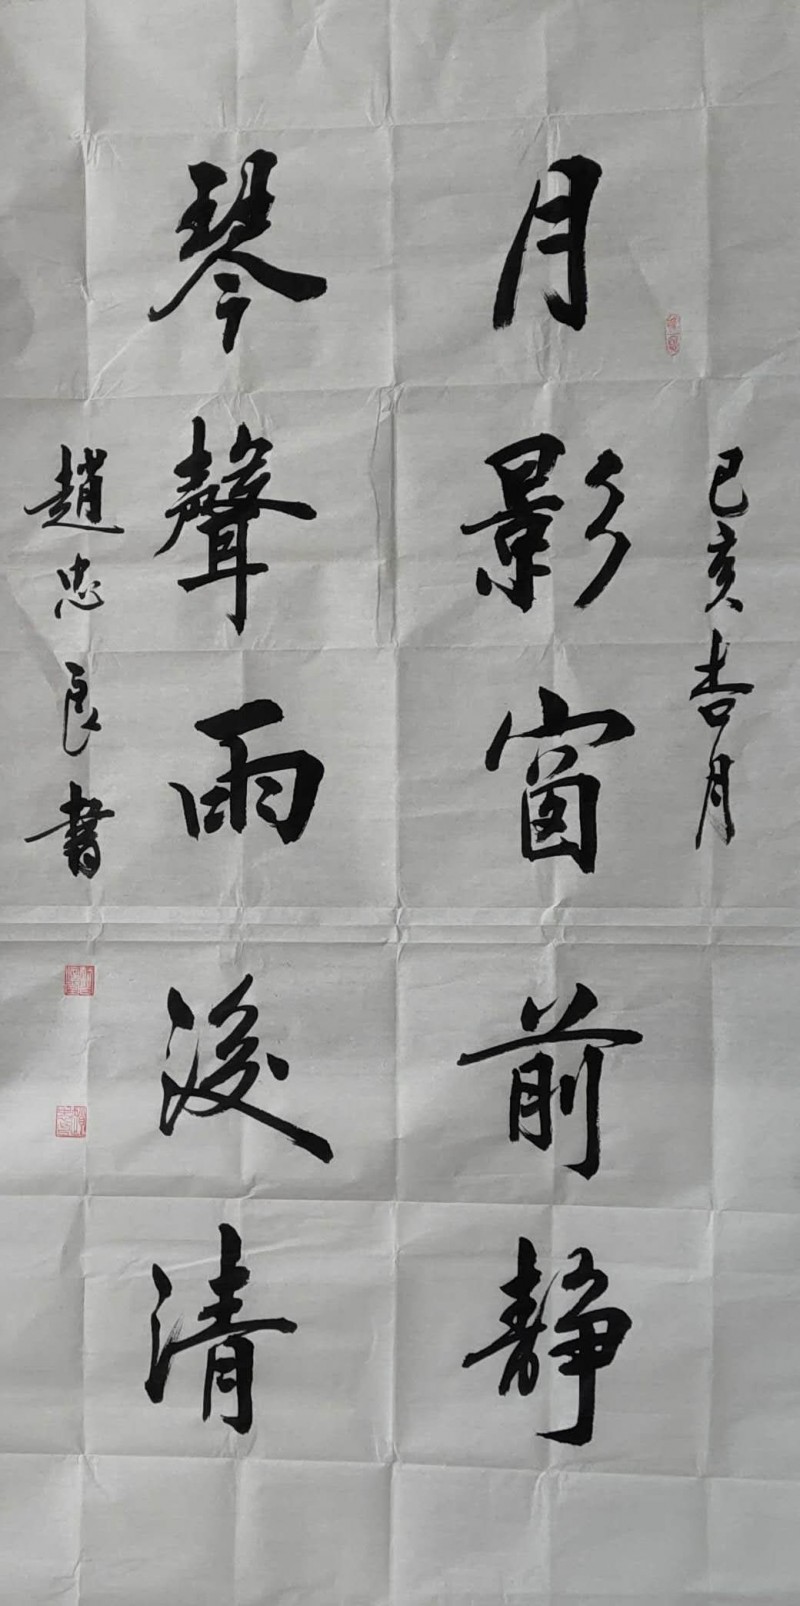 己亥杏月
月影窗前静
琴聲雨後清
趙忠良書